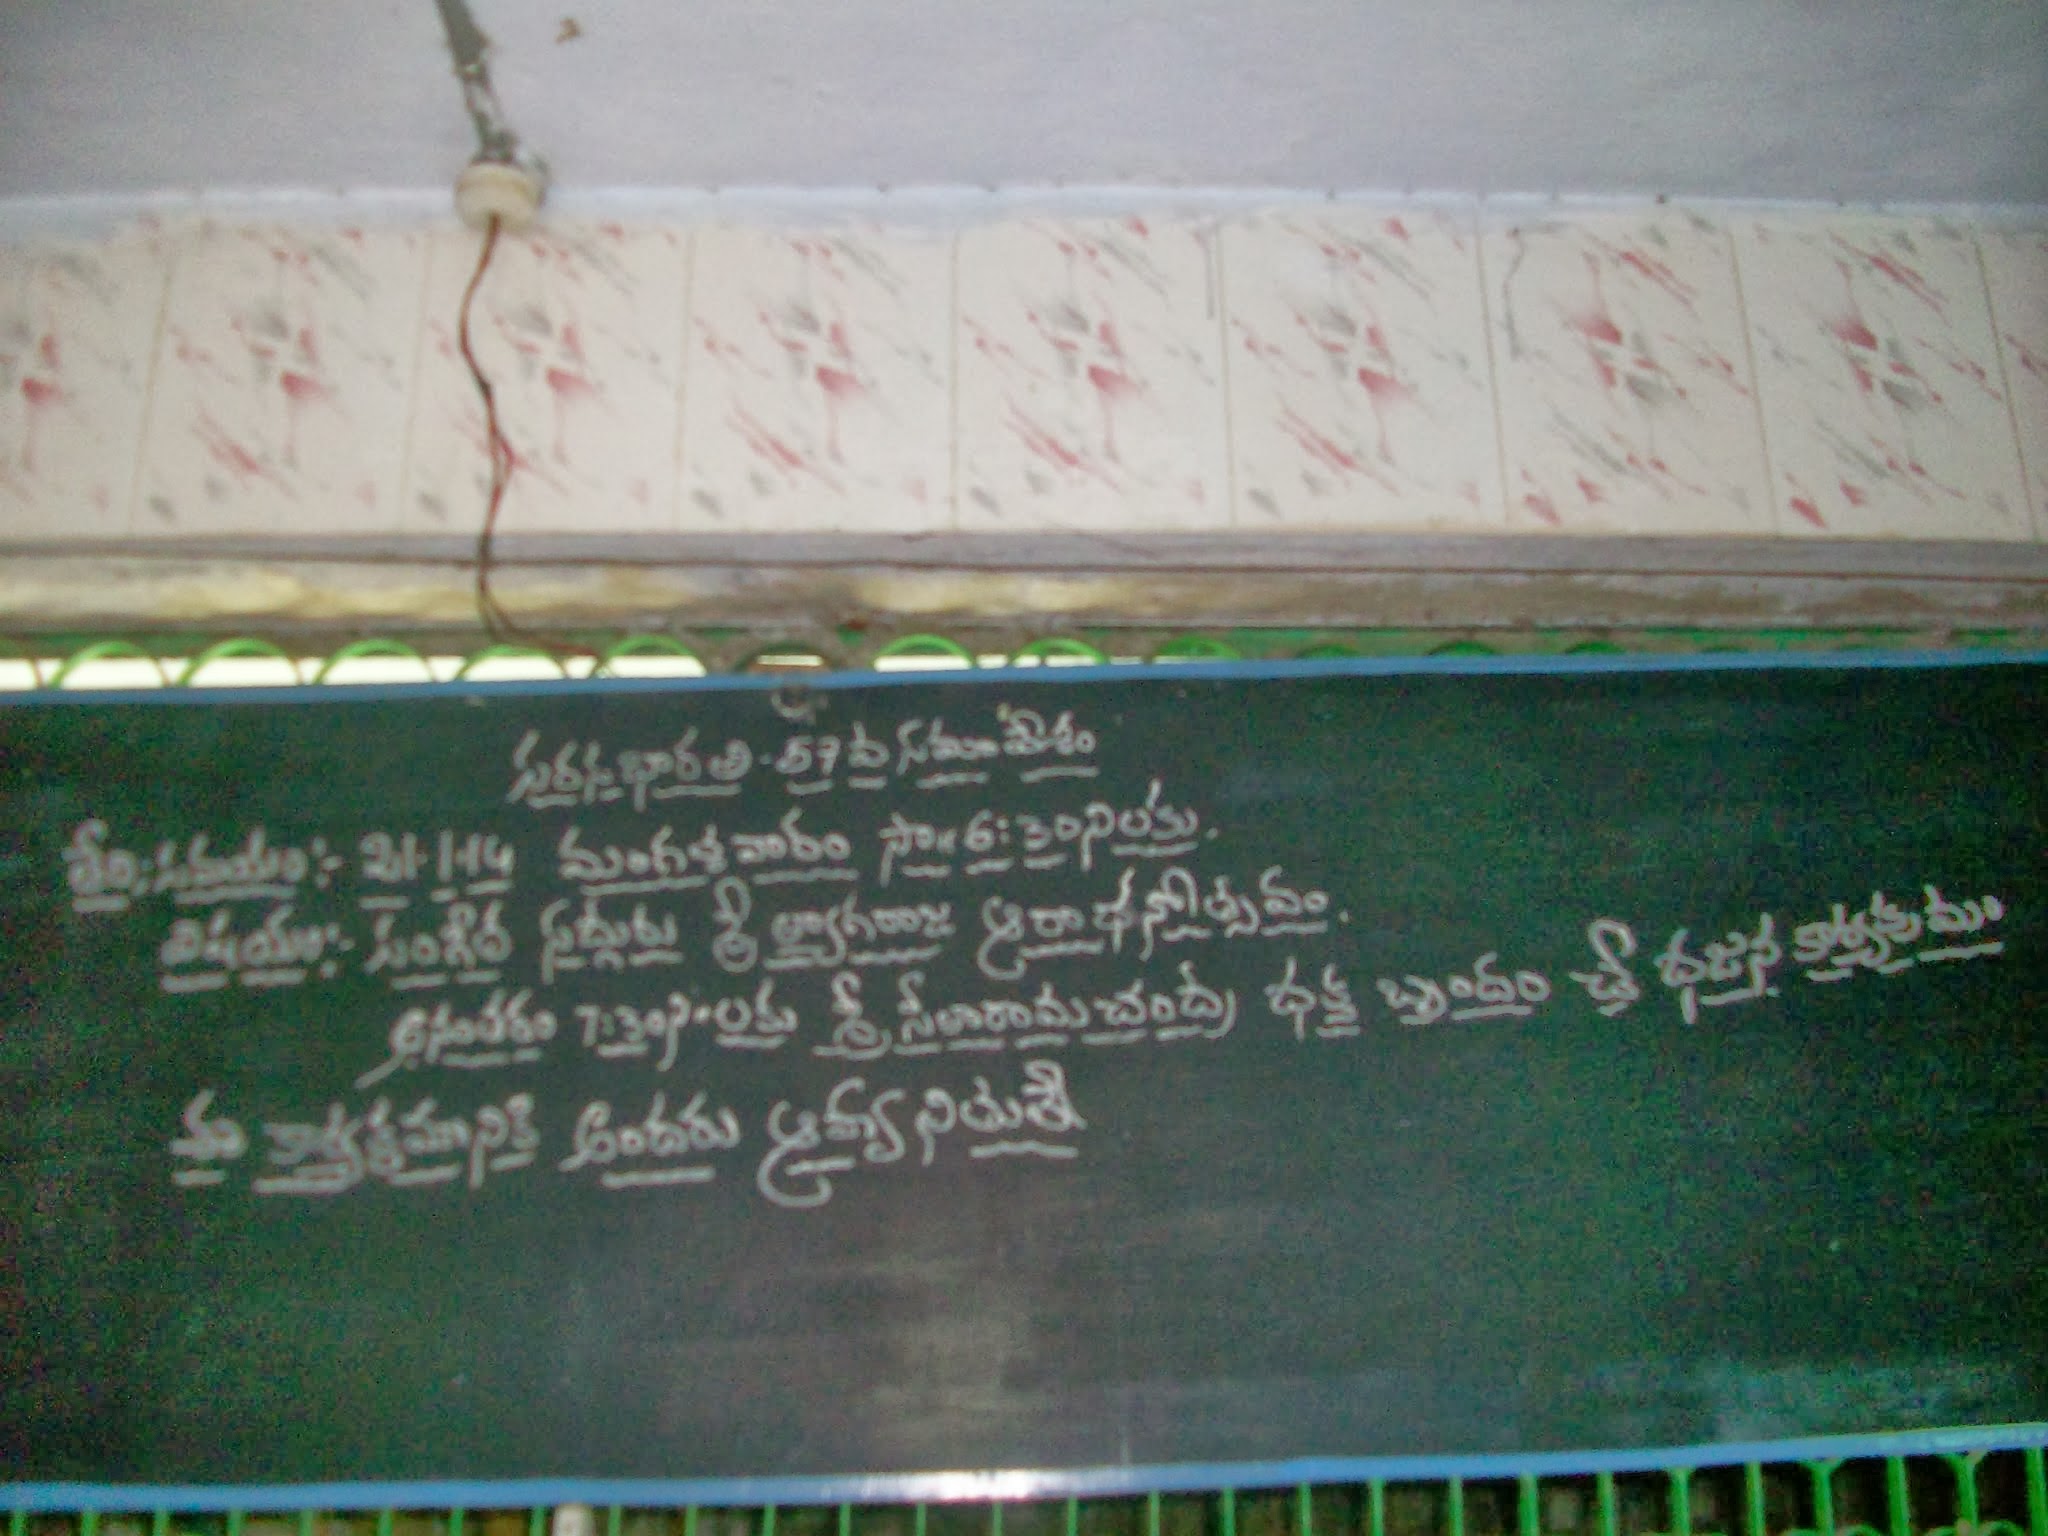 సరసభారతి - 57 వ సమావేశం
తేది, సమయం :- 21-1-14 మంగళవారం సా॥ 6:30ని లకు.
విషయం :- సంగీత సద్గురు శ్రీ త్యాగరాజ ఆరాధనోత్సవం.
అనంతరం 7:30ని॰లకు శ్రీ సీతారామచంద్ర భక్త బృందం చే భజన కార్యక్రమం
ఈ కార్యక్రమానికి అందరు ఆహ్వానితులే